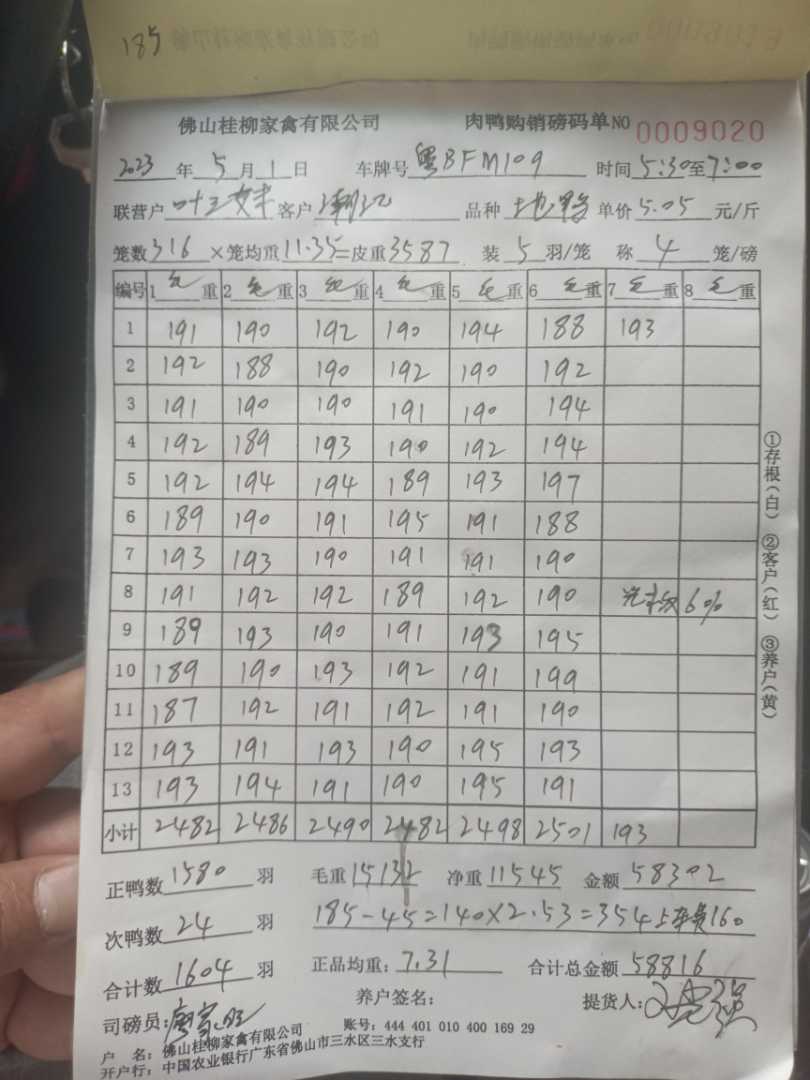 185
佛山桂柳家禽有限公司 肉鸭购销磅码单NO 0009020
2023 年 5 月 1 日 车牌号 粤BFM109 时间 5:30至7:00
联营户 客户 品种 单价 5.05 元/斤
笼数 316 ×笼均重 11.35=皮重 3587 装 5 羽/笼 称 4 笼/磅
编号 1 毛 重 2 毛 重 3 毛 重 4 毛 重 5 毛 重 6 毛 重 7 毛 重 8 毛 重
1 191 190 192 190 194 188 193
2 192 188 190 192 190 192
3 191 190 190 191 190 194
4 192 189 193 190 192 194
5 192 194 194 189 193 197
6 189 190 191 195 191 188
7 193 193 190 191 191 190
8 191 192 192 189 192 190 6%
9 189 193 190 191 193 195
10 189 190 193 192 191 199
11 187 192 191 192 191 190
12 193 191 193 190 195 193
13 193 194 191 190 195 191
小计 2482 2486 2490 2482 2498 2501 193
①存根(白) ②客户(红) ③养户(黄)
正鸭数 1580 羽 毛重 15132 净重 11545 金额 58302
次鸭数 24 羽 185-45=140×2.53=354 上车费160
合计数 1604 羽 正品均重: 7.31 合计总金额 58816
养户签名: 提货人:
司磅员:
户 名: 佛山桂柳家禽有限公司 账号: 444 401 010 400 169 29
开户行: 中国农业银行广东省佛山市三水区三水支行